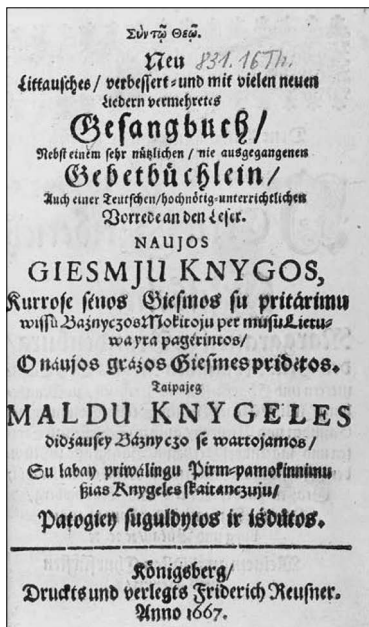 Σύν τῷ Θεῷ.
Neu 831.16 Th.
Littausches / verbessert- und mit vielen neuen
Liedern vermehretes
Gesangbuch /
Nebst einem sehr nützlichen / nie ausgegangenen
Gebetbüchlein /
Auch einer Teutschen / hochnötig-unterrichtlichen
Vorrede an den Leser.
NAUJOS
GIESMJU KNYGOS,
Kurrose sénos Giesmos su pritárimu
wissû Bażnyczos Mokitoju per musû Lietu-
wa yra pagérintos /
O náujos grażos Giesmes pridėtos.
Taipajeg
MALDU KNYGELES
didżausey Báżnyczo se wartojamos /
Su labay priwálingu Pirm-pamokinnimu
ßias Knygeles skaitanczuju /
Patogiey suguldytos ir ißdûtos.
Königsberg /
Druckts und verlegts Friderich Reusner.
Anno 1667.